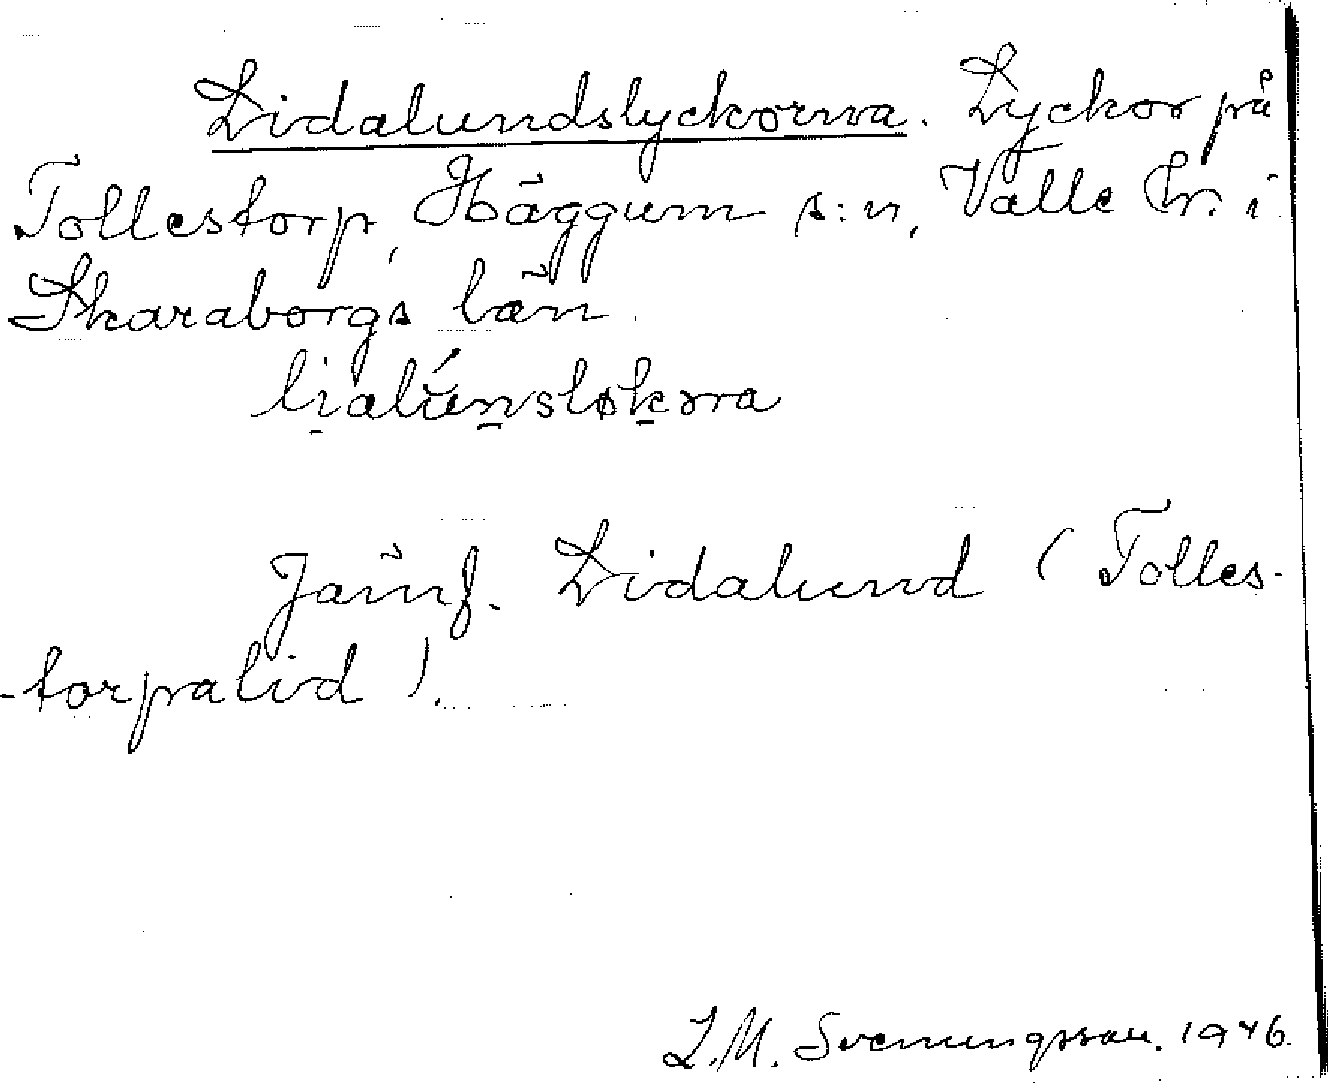 Lidalundslyckorna. Lyckor på
Tollestorp, Häggum s:n, Valle hr. i
Skaraborgs län.
li̠alún̠sløk̠ɔra
Jämf. Lidalund (Tolles-
-torpalid).
L.M. Svenungsson. 1946.